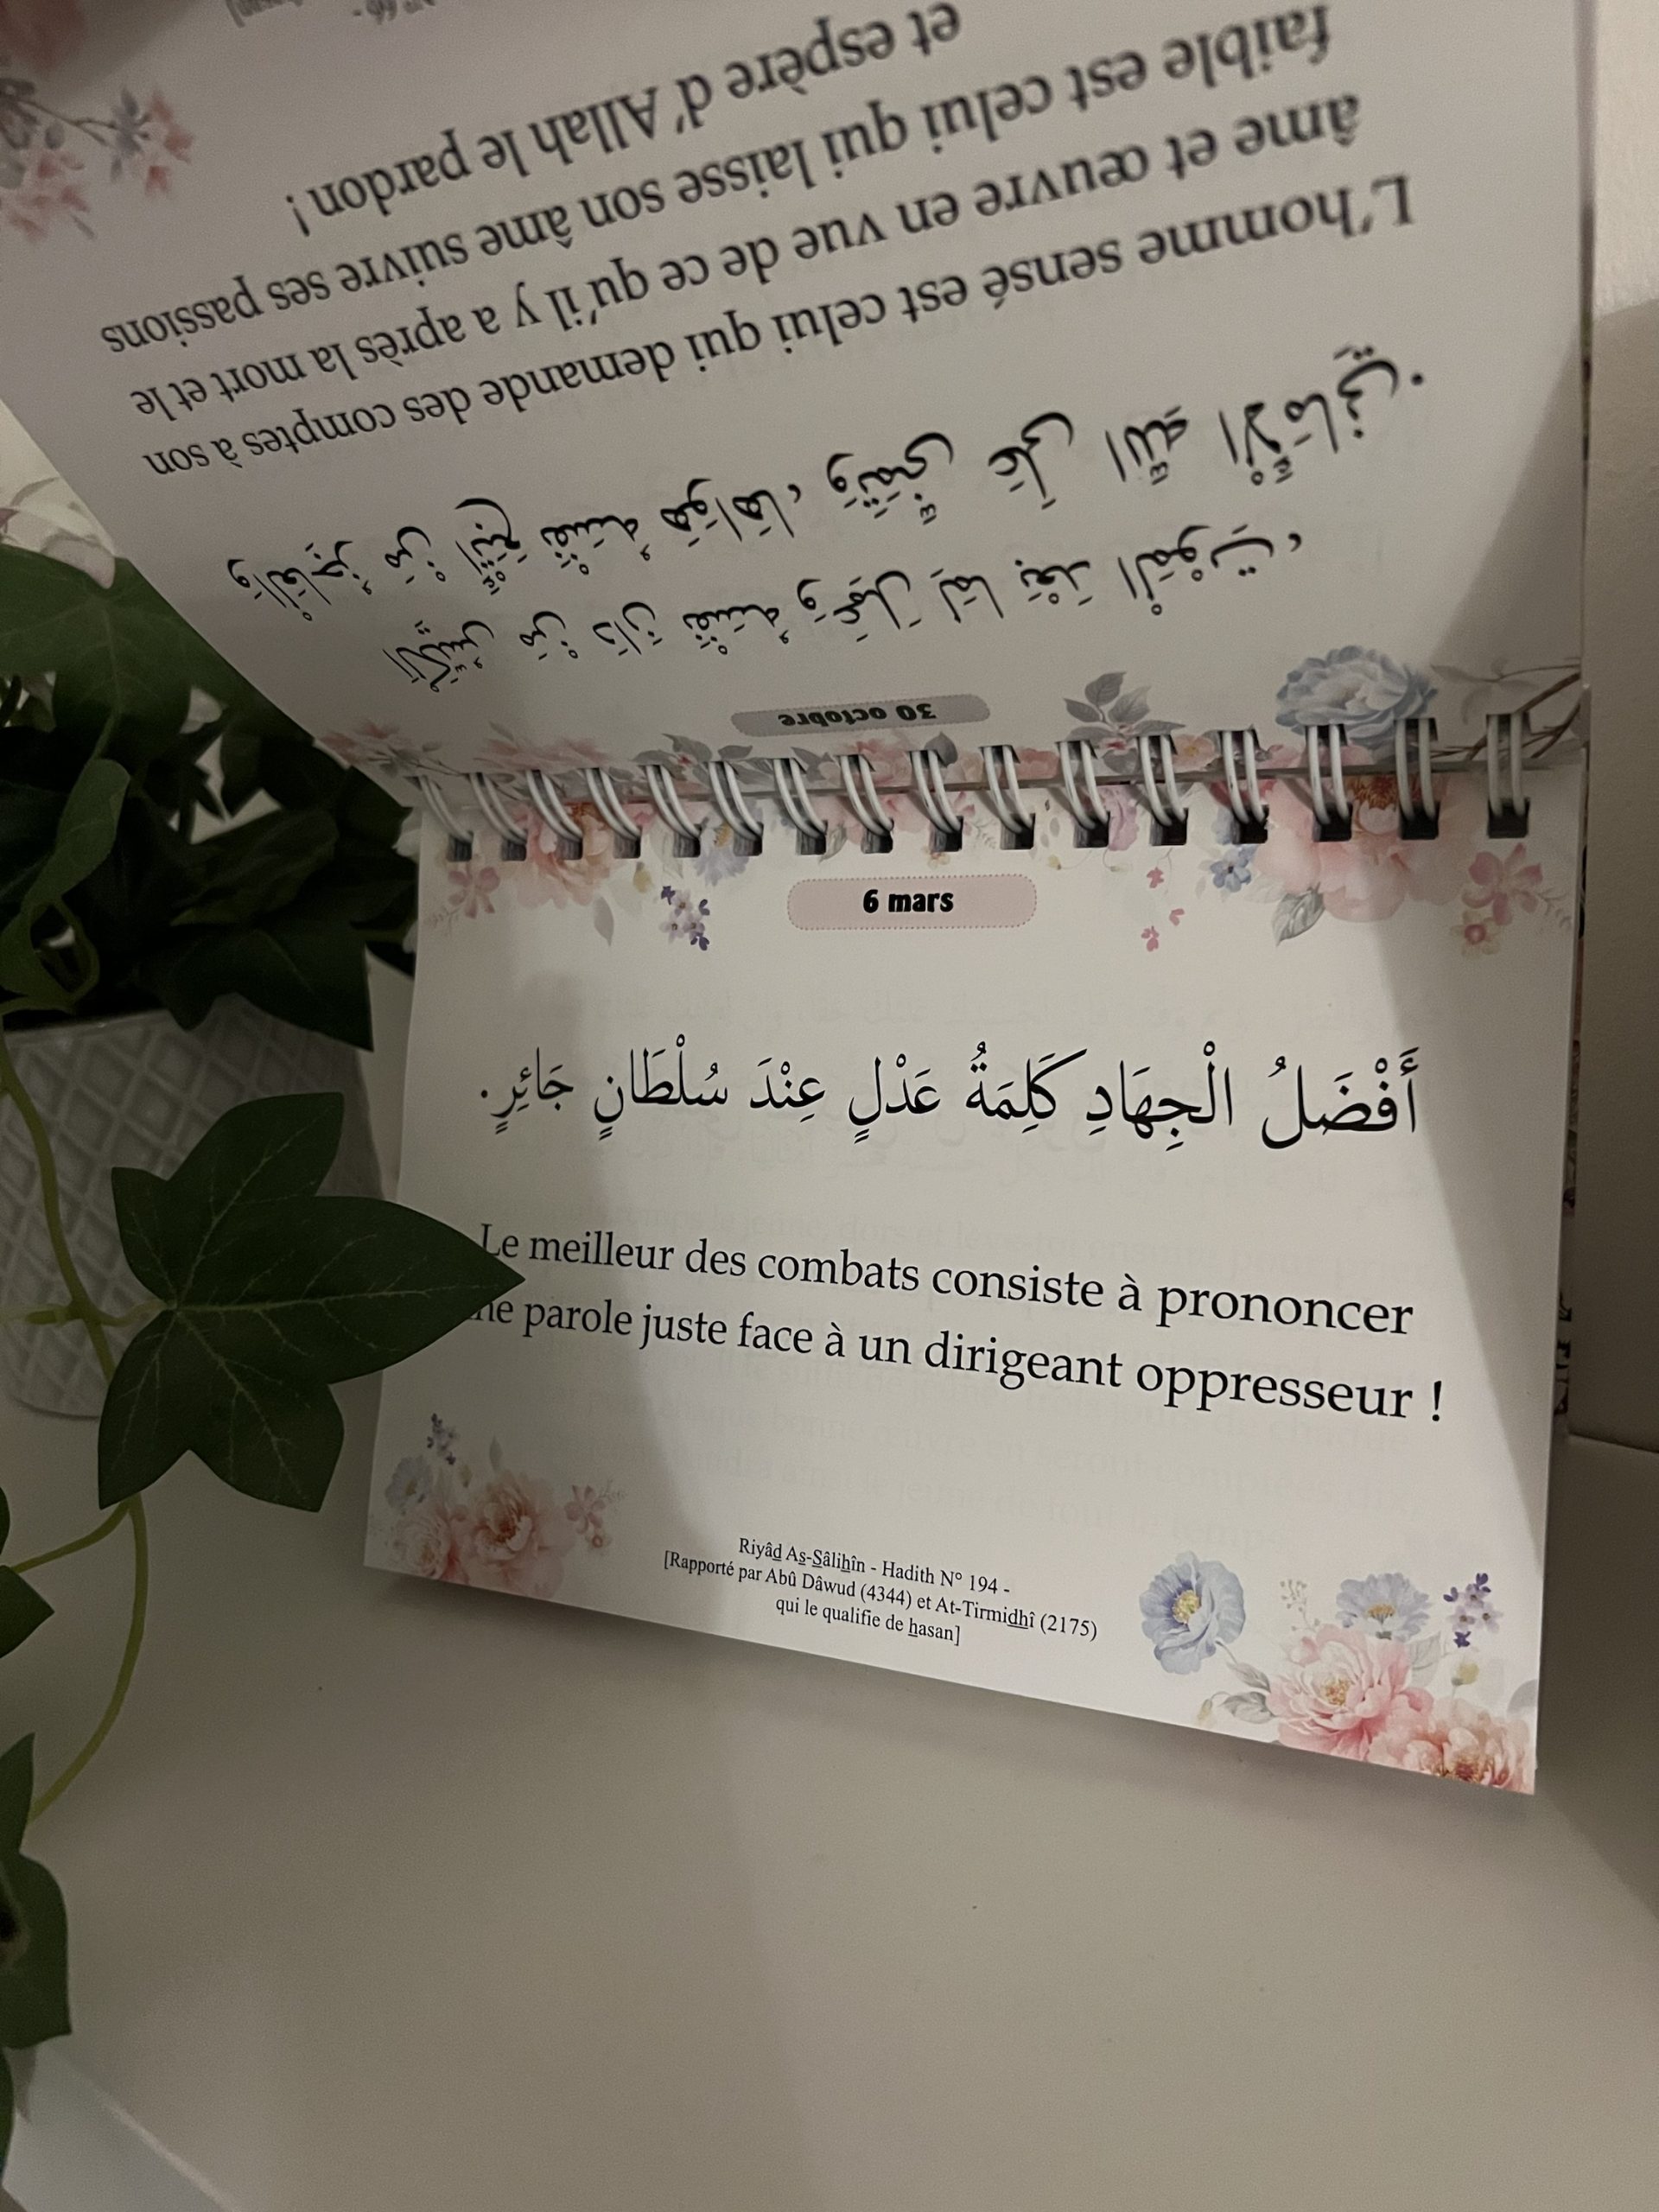 30 octobre
الْكَيِّسُ مَنْ دَانَ نَفْسَهُ وَعَمِلَ لِمَا بَعْدَ الْمَوْتِ،
وَالْعَاجِزُ مَنْ أَتْبَعَ نَفْسَهُ هَوَاهَا، وَتَمَنَّى عَلَى اللَّهِ الْأَمَانِيَّ.
L'homme sensé est celui qui demande des comptes à son
âme et œuvre en vue de ce qu'il y a après la mort et le
faible est celui qui laisse son âme suivre ses passions
et espère d'Allah le pardon !
6 mars
أَفْضَلُ الْجِهَادِ كَلِمَةُ عَدْلٍ عِنْدَ سُلْطَانٍ جَائِرٍ.
Le meilleur des combats consiste à prononcer
ne parole juste face à un dirigeant oppresseur !
Riyâd As-Sâlihîn - Hadith N° 194 -
[Rapporté par Abû Dâwud (4344) et At-Tirmidhî (2175)
qui le qualifie de hasan]